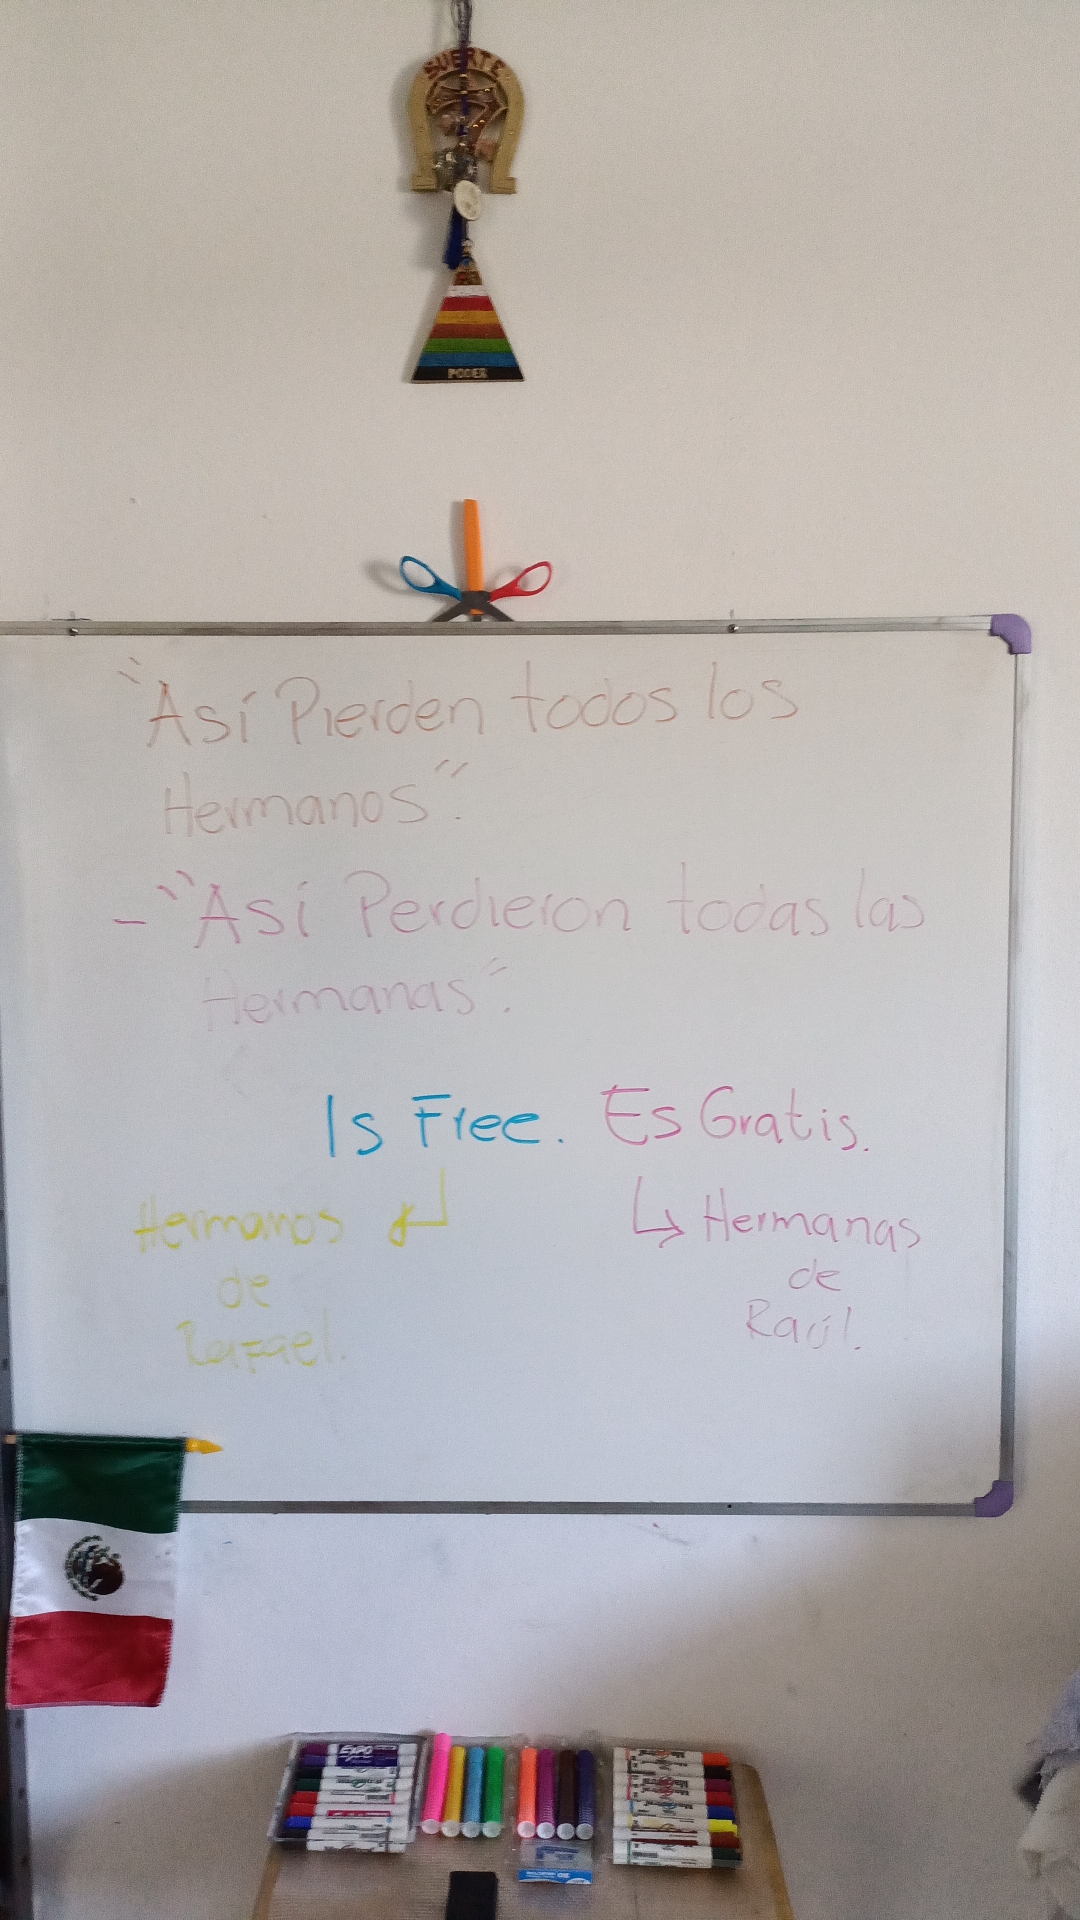 SUERTE
PODER
"Así Pierden todos los
Hermanos".
- "Así Perdieron todas las
Hermanas".
Is Free. Es Gratis.
Hermanos
de
Rafael.
Hermanas
de
Raúl.
EXPO